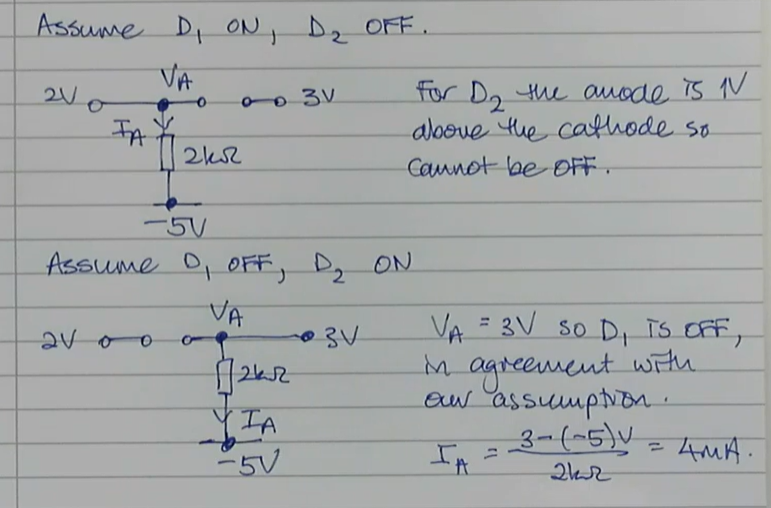 Assume D₁ ON, D₂ OFF.
2V VA 3V
IA
2kΩ
-5V
For D₂ the anode is 1V
above the cathode so
cannot be OFF.
Assume D₁ OFF, D₂ ON
2V VA 3V
2kΩ
IA
-5V
VA = 3V so D₁ is OFF,
in agreement with
our assumption.
IA = 3-(-5)V / 2kΩ = 4mA.